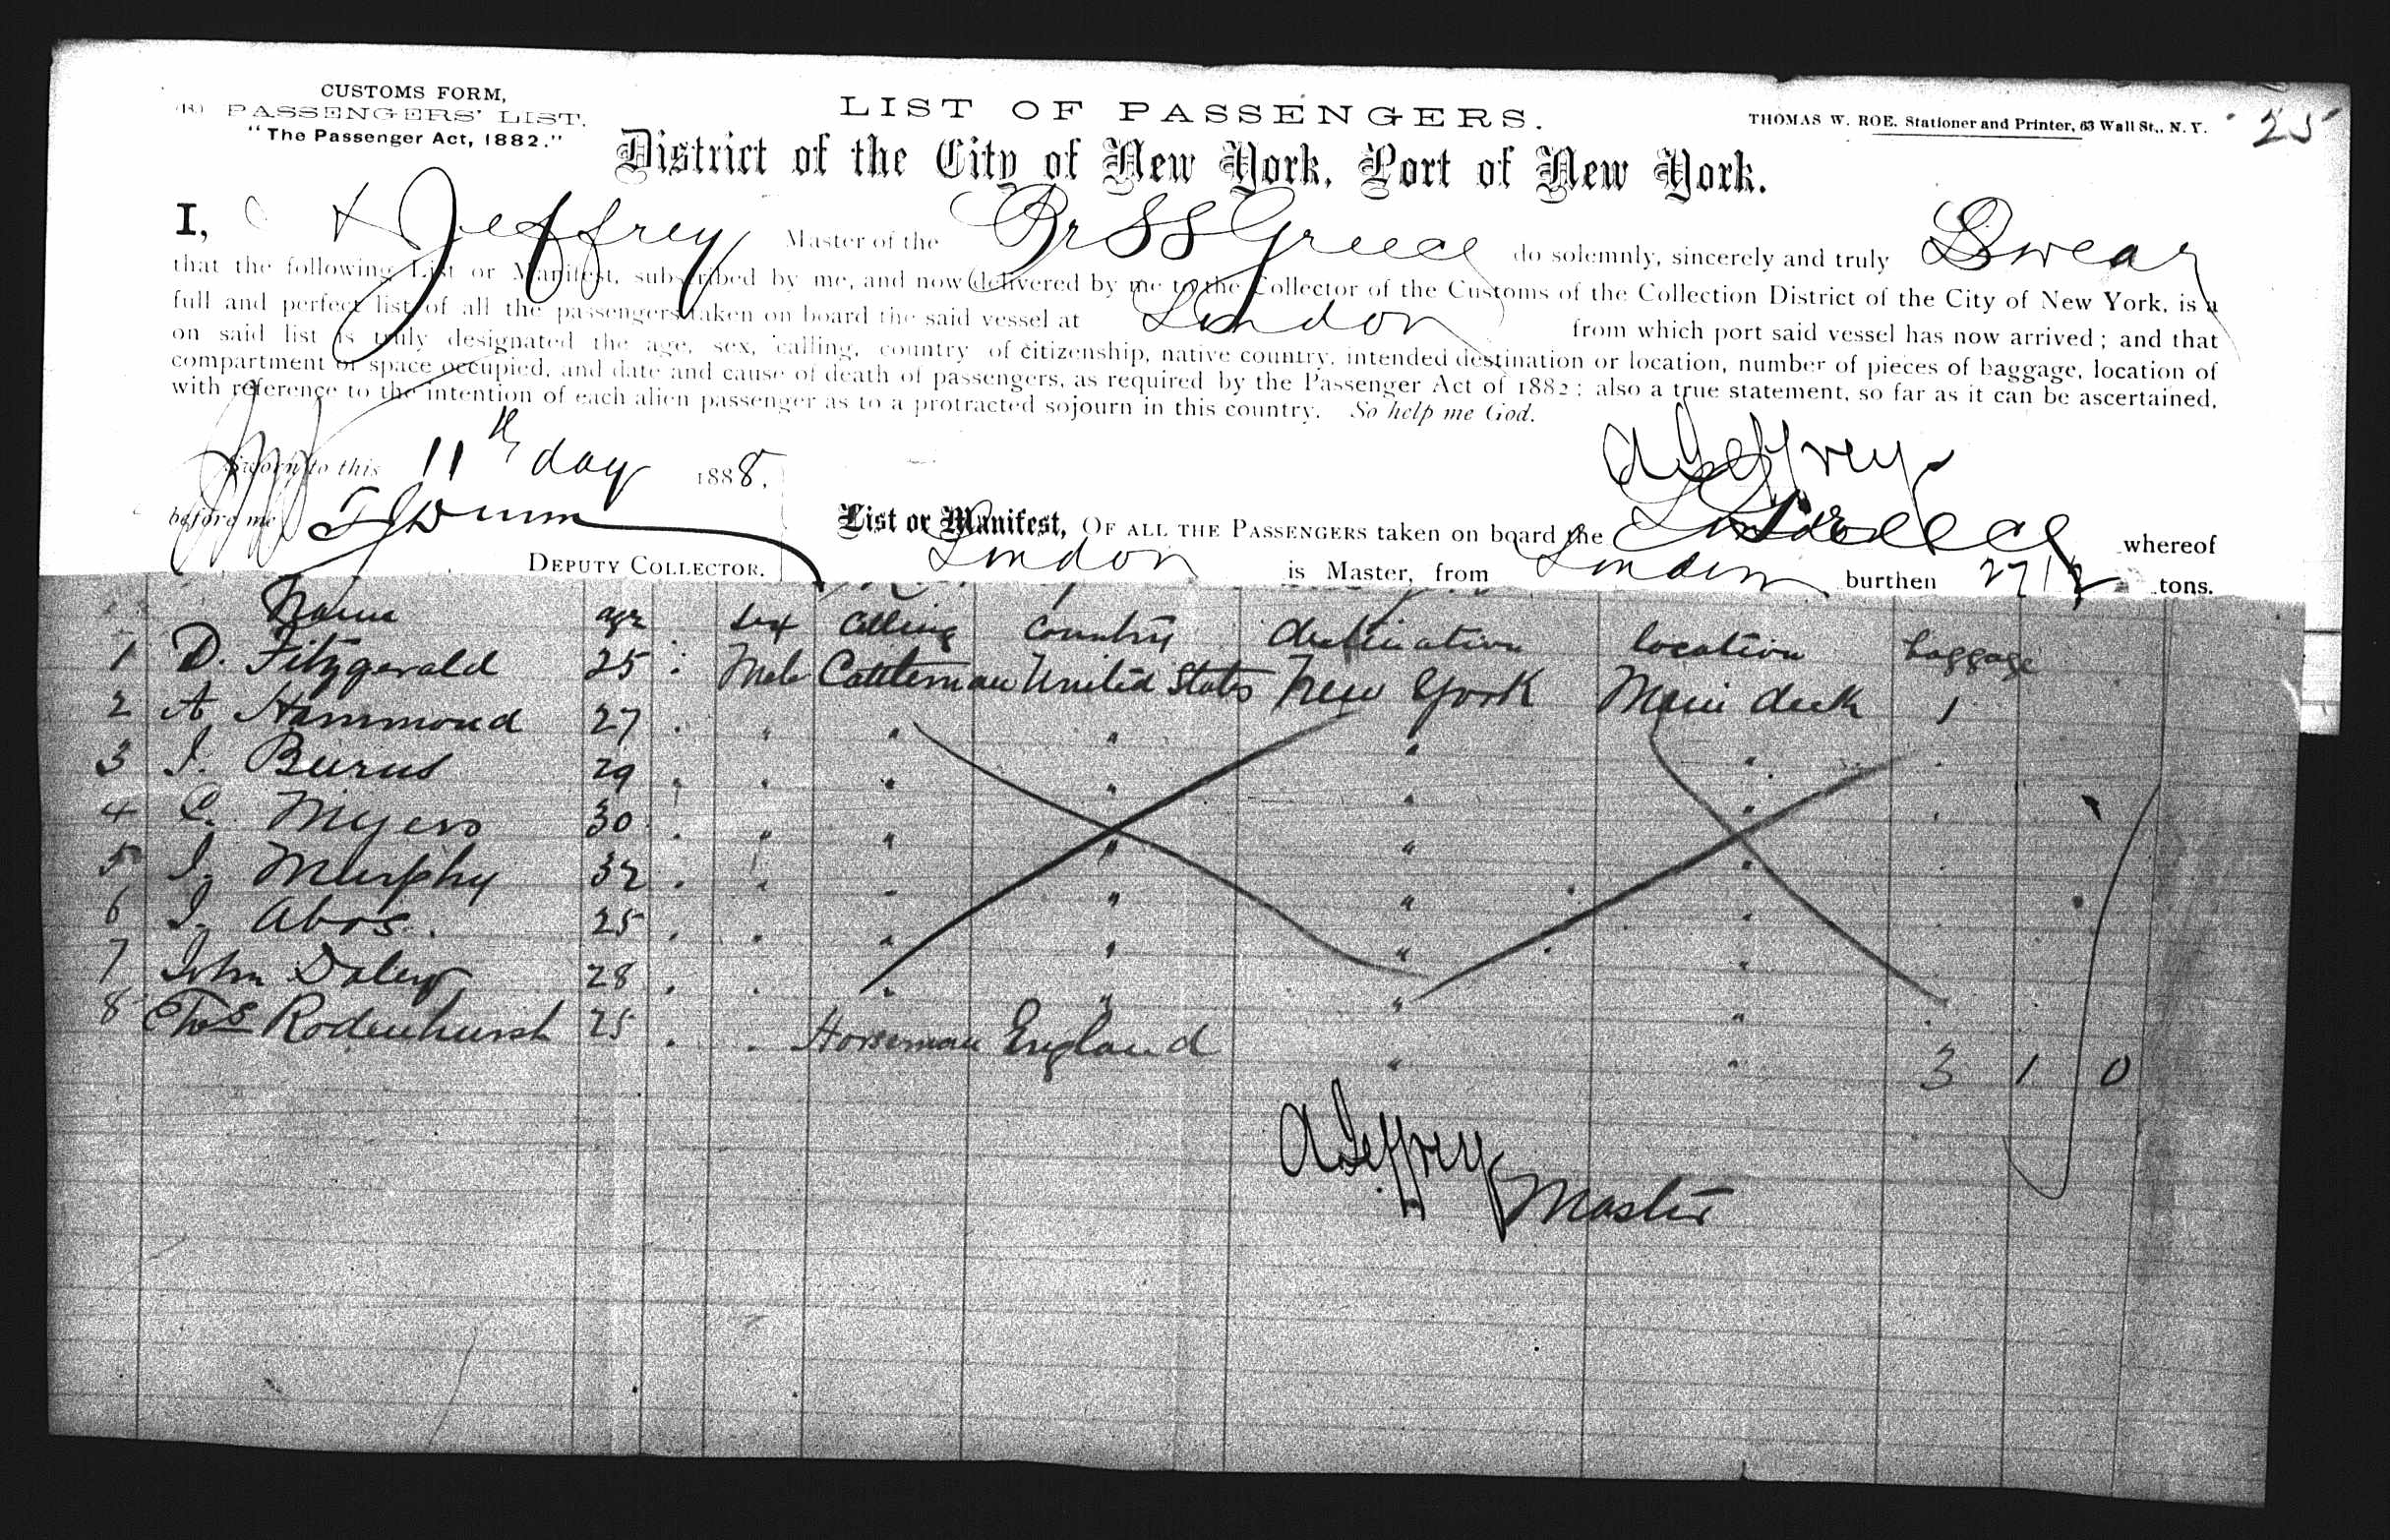 CUSTOMS FORM,
(R) PASSENGERS' LIST.
"The Passenger Act, 1882."
LIST OF PASSENGERS.
THOMAS W. ROE. Stationer and Printer, 63 Wall St., N. Y.
25
District of the City of New York, Port of New York.
I, Jeffrey Master of the Br SS Greece do solemnly, sincerely and truly Swear
that the following List or Manifest, subscribed by me, and now delivered by me to the Collector of the Customs of the Collection District of the City of New York, is a
full and perfect list of all the passengers taken on board the said vessel at London from which port said vessel has now arrived; and that
on said list is truly designated the age, sex, calling, country of citizenship, native country, intended destination or location, number of pieces of baggage, location of
compartment or space occupied, and date and cause of death of passengers, as required by the Passenger Act of 1882; also a true statement, so far as it can be ascertained,
with reference to the intention of each alien passenger as to a protracted sojourn in this country. So help me God.
Sworn to this 11th day 1888,
A Jeffrey
before me
DEPUTY COLLECTOR.
List or Manifest, OF ALL THE PASSENGERS taken on board the whereof
London is Master, from London burthen tons.
Name age sex calling country destination location baggage
1 D. Fitzgerald 25 . Male Cattleman United States New York Main deck 1
2 A Hammond 27 . " " " " " .
3 J. Burns 29 . " " " " " .
4 C. Myers 30 . " " " " "
5 J. Murphy 32 . " " " " "
6 J. Abos. 25 . " " " " "
7 John Daley 28 . " " " " " .
8 Thos Rodenhurst 25 . . Horseman England " " 3 1 0
A Jeffrey
Master